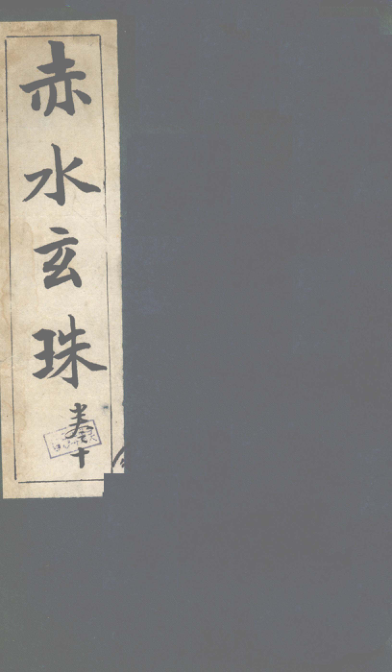 赤水玄珠
卷十